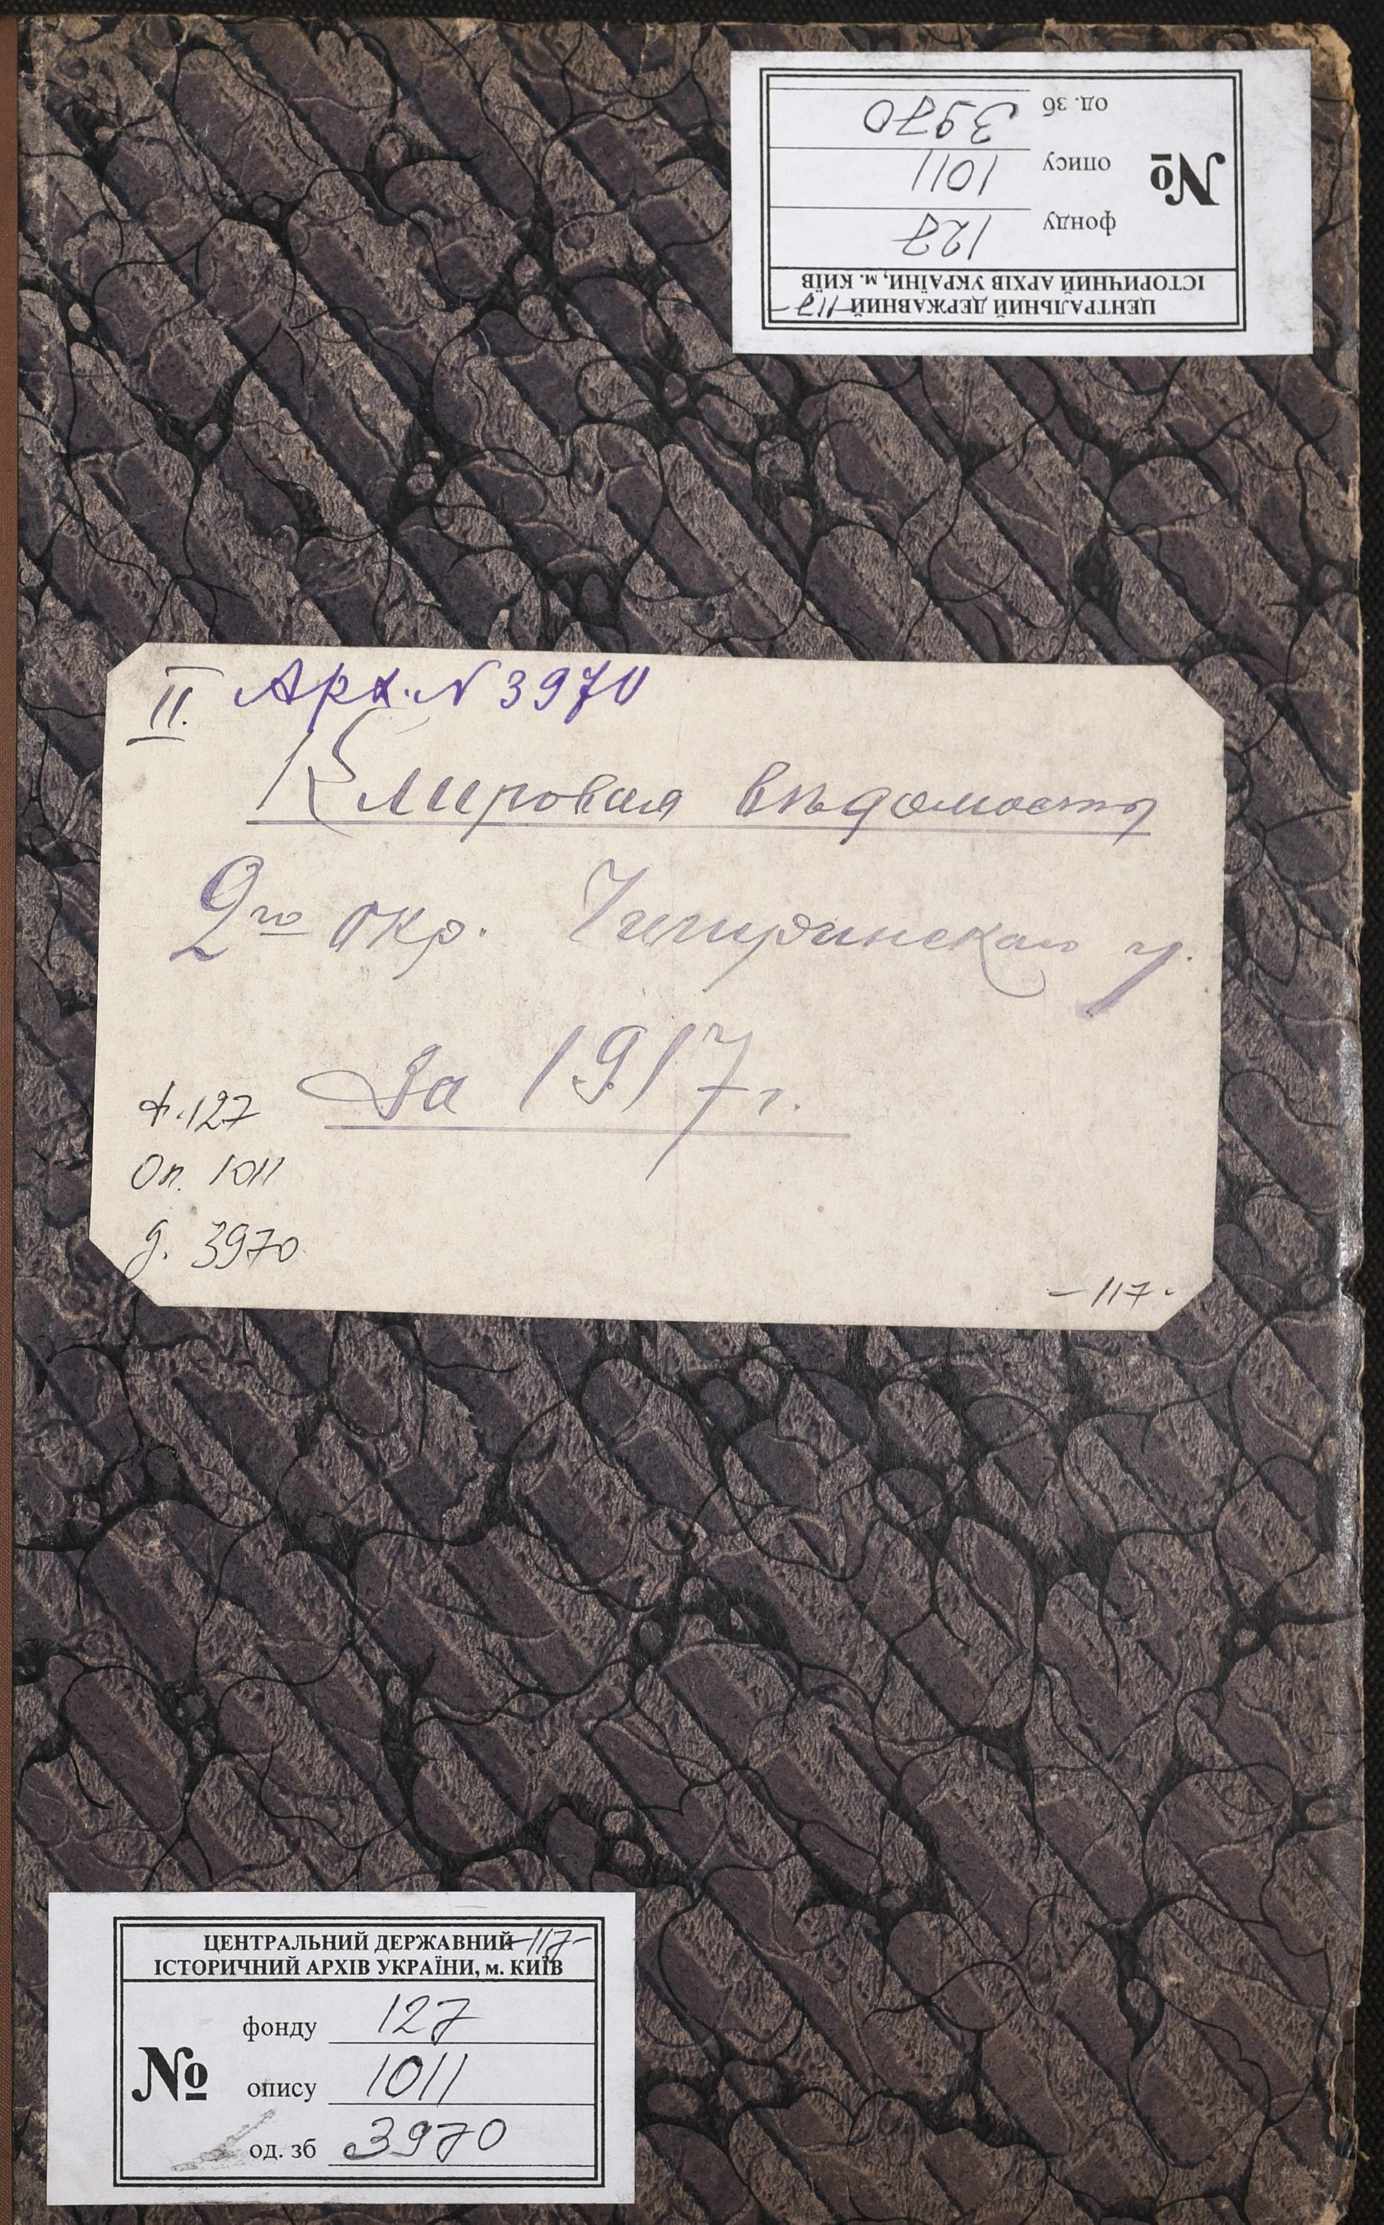 ЦЕНТРАЛЬНИЙ ДЕРЖАВНИЙ -117-
ІСТОРИЧНИЙ АРХІВ УКРАЇНИ, м. КИЇВ
№
фонду 127
опису 1011
од. зб 3970
II. Арх. N 3970
Клировая вѣдомость
2го окр. Чигиринскаго у.
За 1917 г.
ф. 127
Оп. 1011
д. 3970
-117-
ЦЕНТРАЛЬНИЙ ДЕРЖАВНИЙ -117-
ІСТОРИЧНИЙ АРХІВ УКРАЇНИ, м. КИЇВ
№
фонду 127
опису 1011
од. зб 3970